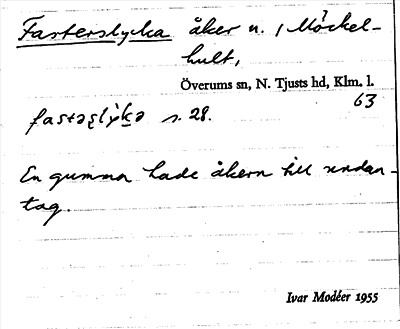 Fasterslycka åker n. i Möckel-
hult,
Överums sn, N. Tjusts hd, Klm. l.
63
s. 28.
En gumma hade åkern till undan-
tag.
Ivar Modéer 1955